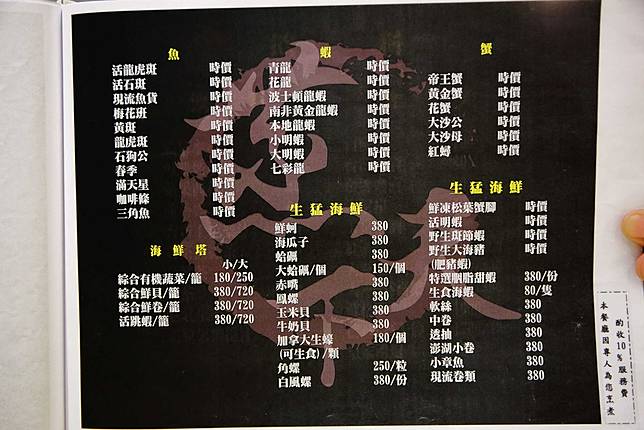 魚
活龍虎斑 時價
活石斑 時價
現流魚貨 時價
梅花班 時價
黄斑 時價
龍虎斑 時價
石狗公 時價
春季 時價
滿天星 時價
咖啡條 時價
三角魚 時價
海鮮塔
小/大
綜合有機蔬菜/籠 180/250
綜合鮮貝/籠 380/720
綜合鮮卷/籠 380/720
活跳蝦/籠 380/720
蝦
青龍 時價
花龍 時價
波士頓龍蝦 時價
南非黃金龍蝦 時價
本地龍蝦 時價
小明蝦 時價
大明蝦 時價
七彩龍 時價
生猛海鮮
鮮蚵 380
海瓜子 380
蛤蜊 380
大蛤蜊/個 150/個
赤嘴 380
鳳螺 380
玉米貝 380
牛奶貝 380
加拿大生蠔 180/個
(可生食)/顆
角螺 250/粒
白風螺 380/份
蟹
帝王蟹 時價
黃金蟹 時價
花蟹 時價
大沙公 時價
大沙母 時價
紅蟳 時價
生猛海鮮
鮮凍松葉蟹腳 時價
活明蝦 時價
野生斑節蝦 時價
野生大海豬 時價
(肥豬蝦)
特選胭脂甜蝦 380/份
生食海蝦 80/隻
軟絲 380
中卷 380
透抽 380
澎湖小卷 380
小章魚 380
現流卷類 380
本餐廳因專人為您烹煮
酌收10%服務費